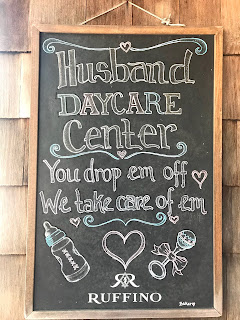 Husband
DAYCARE
Center
You drop em off
We take care of em
RUFFINO